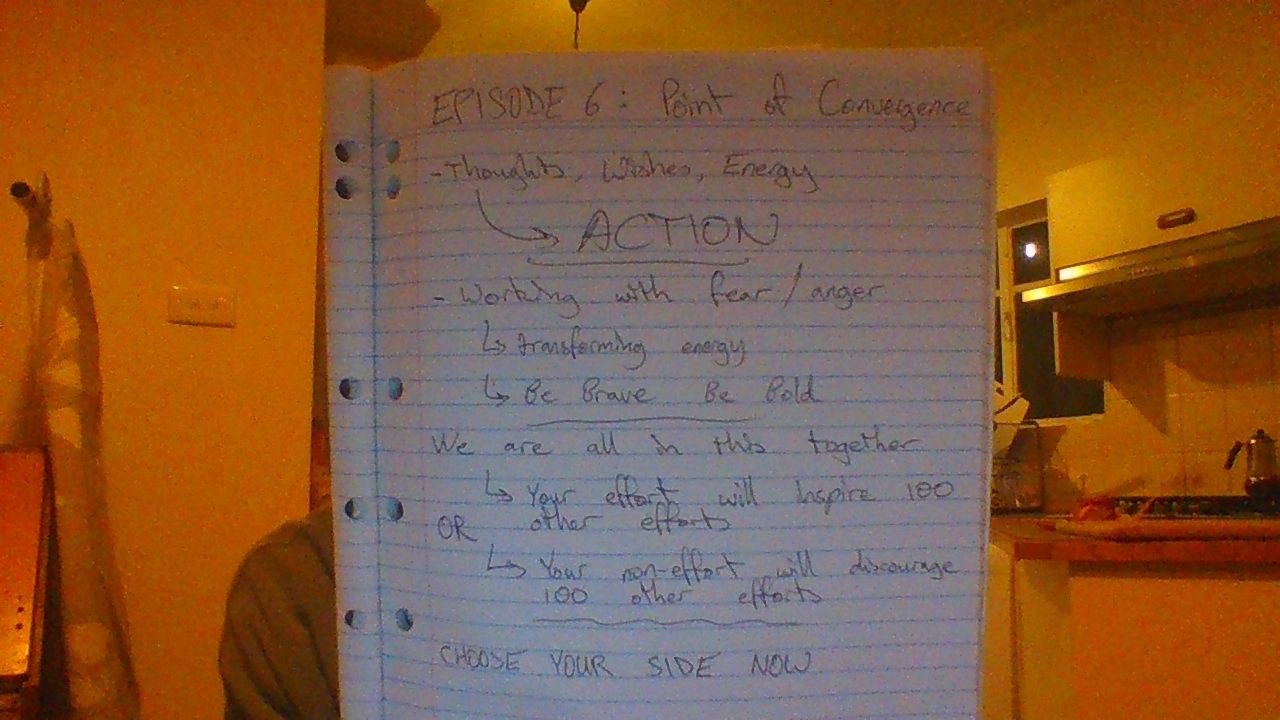 EPISODE 6: Point of Convergence
- Thoughts, Wishes, Energy
↳ ACTION
- Working with fear / anger
↳ transforming energy
↳ Be Brave Be Bold
We are all in this together
↳ Your effort will inspire 100
OR other efforts
↳ Your non-effort will discourage
100 other efforts
CHOOSE YOUR SIDE NOW